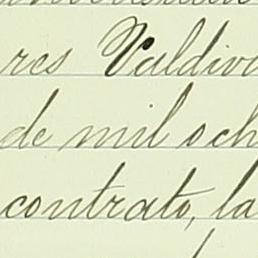 res Valdivi
de mil och
contrato, la